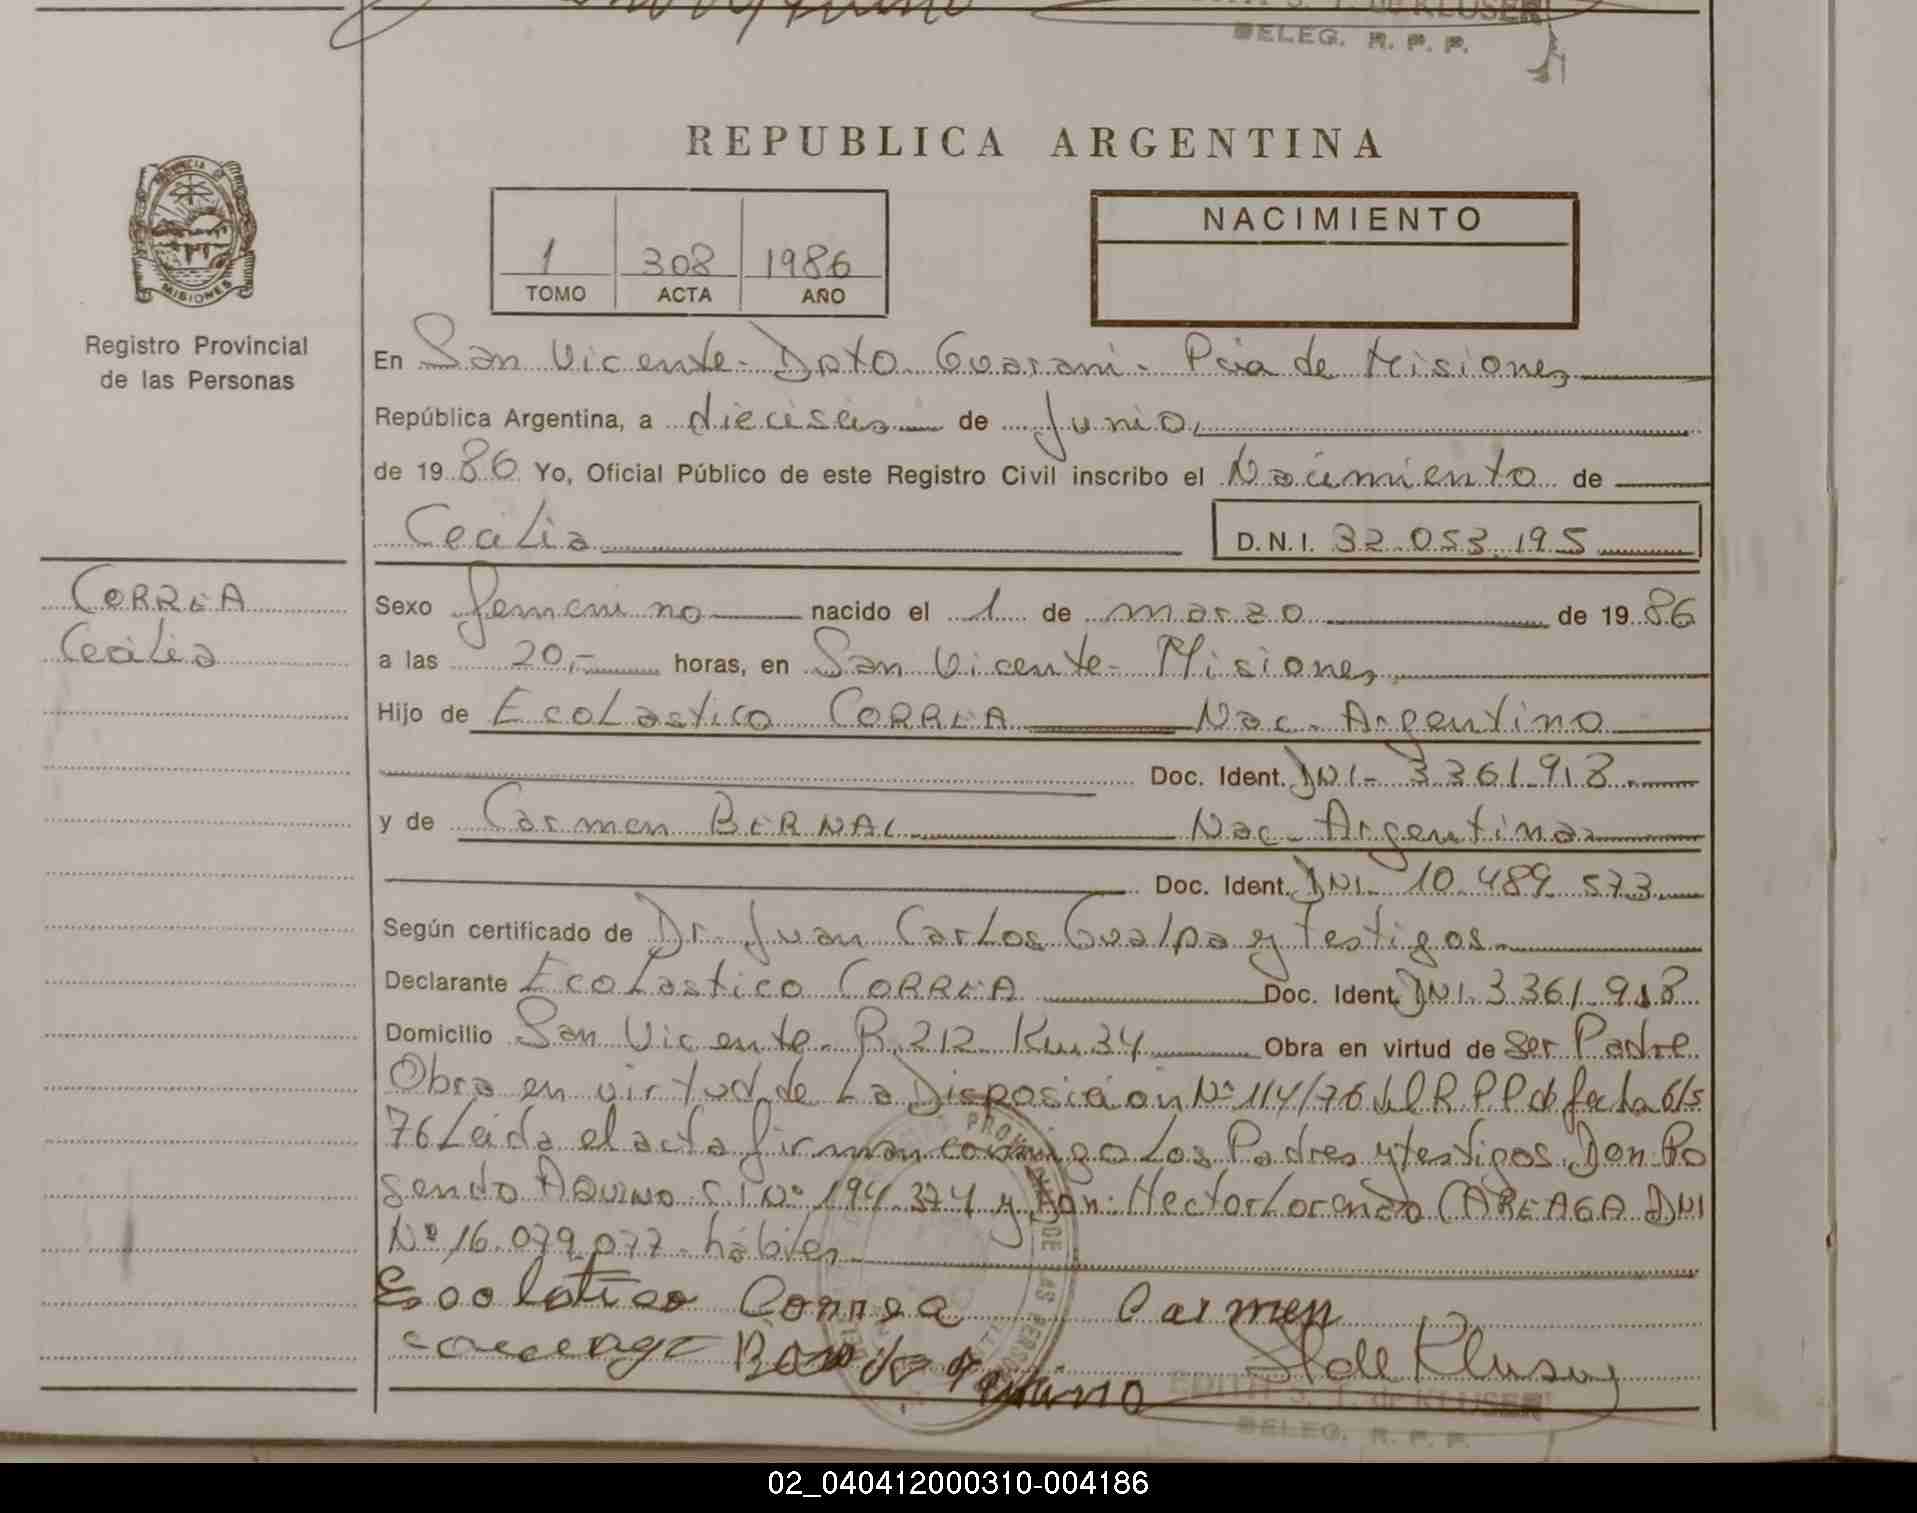 EDITH S. T. de KLUSER
DELEG. R. P. P.
REPUBLICA ARGENTINA
PROVINCIA DE
MISIONES
Registro Provincial
de las Personas
1 308 1986
TOMO ACTA AÑO
NACIMIENTO
En San Vicente - Dpto Guarani - Pcia de Misiones
República Argentina, a dieciseis de Junio,
de 1986 Yo, Oficial Público de este Registro Civil inscribo el Nacimiento de
Cecilia D.N.I. 32.053.195
CORREA
Cecilia
Sexo femenino nacido el 1 de marzo de 1986
a las 20,- horas, en San Vicente - Misiones
Hijo de EcoLastico CORREA Nac. Argentino
Doc. Ident. DNI- 3361.918
y de Carmen BERNAL Nac. Argentina
Doc. Ident. DNI. 10.489.573
Según certificado de Dr. Juan Carlos Gualpa y Testigos
Declarante EcoLastico CORREA Doc. Ident. DNI. 3361.918
Domicilio San Vicente - R. 212 Km 34 Obra en virtud de ser Padre
Obra en virtud de La Disposición Nº 114/76 del R P P de fecha 6/5
76 Leida el acta firman conmigo Los Padres y testigos Don Ro
sendo AQUINO C.I. Nº 194.374 y Don: Hector Lorenzo CAREAGA DNI
Nº 16.079.077 hábiles
Escolatico Correa Carmen
careaga Rosendo Aquino S T de Kluser
EDITH S. T. de KLUSER
DELEG. R. P. P.
02_040412000310-004186